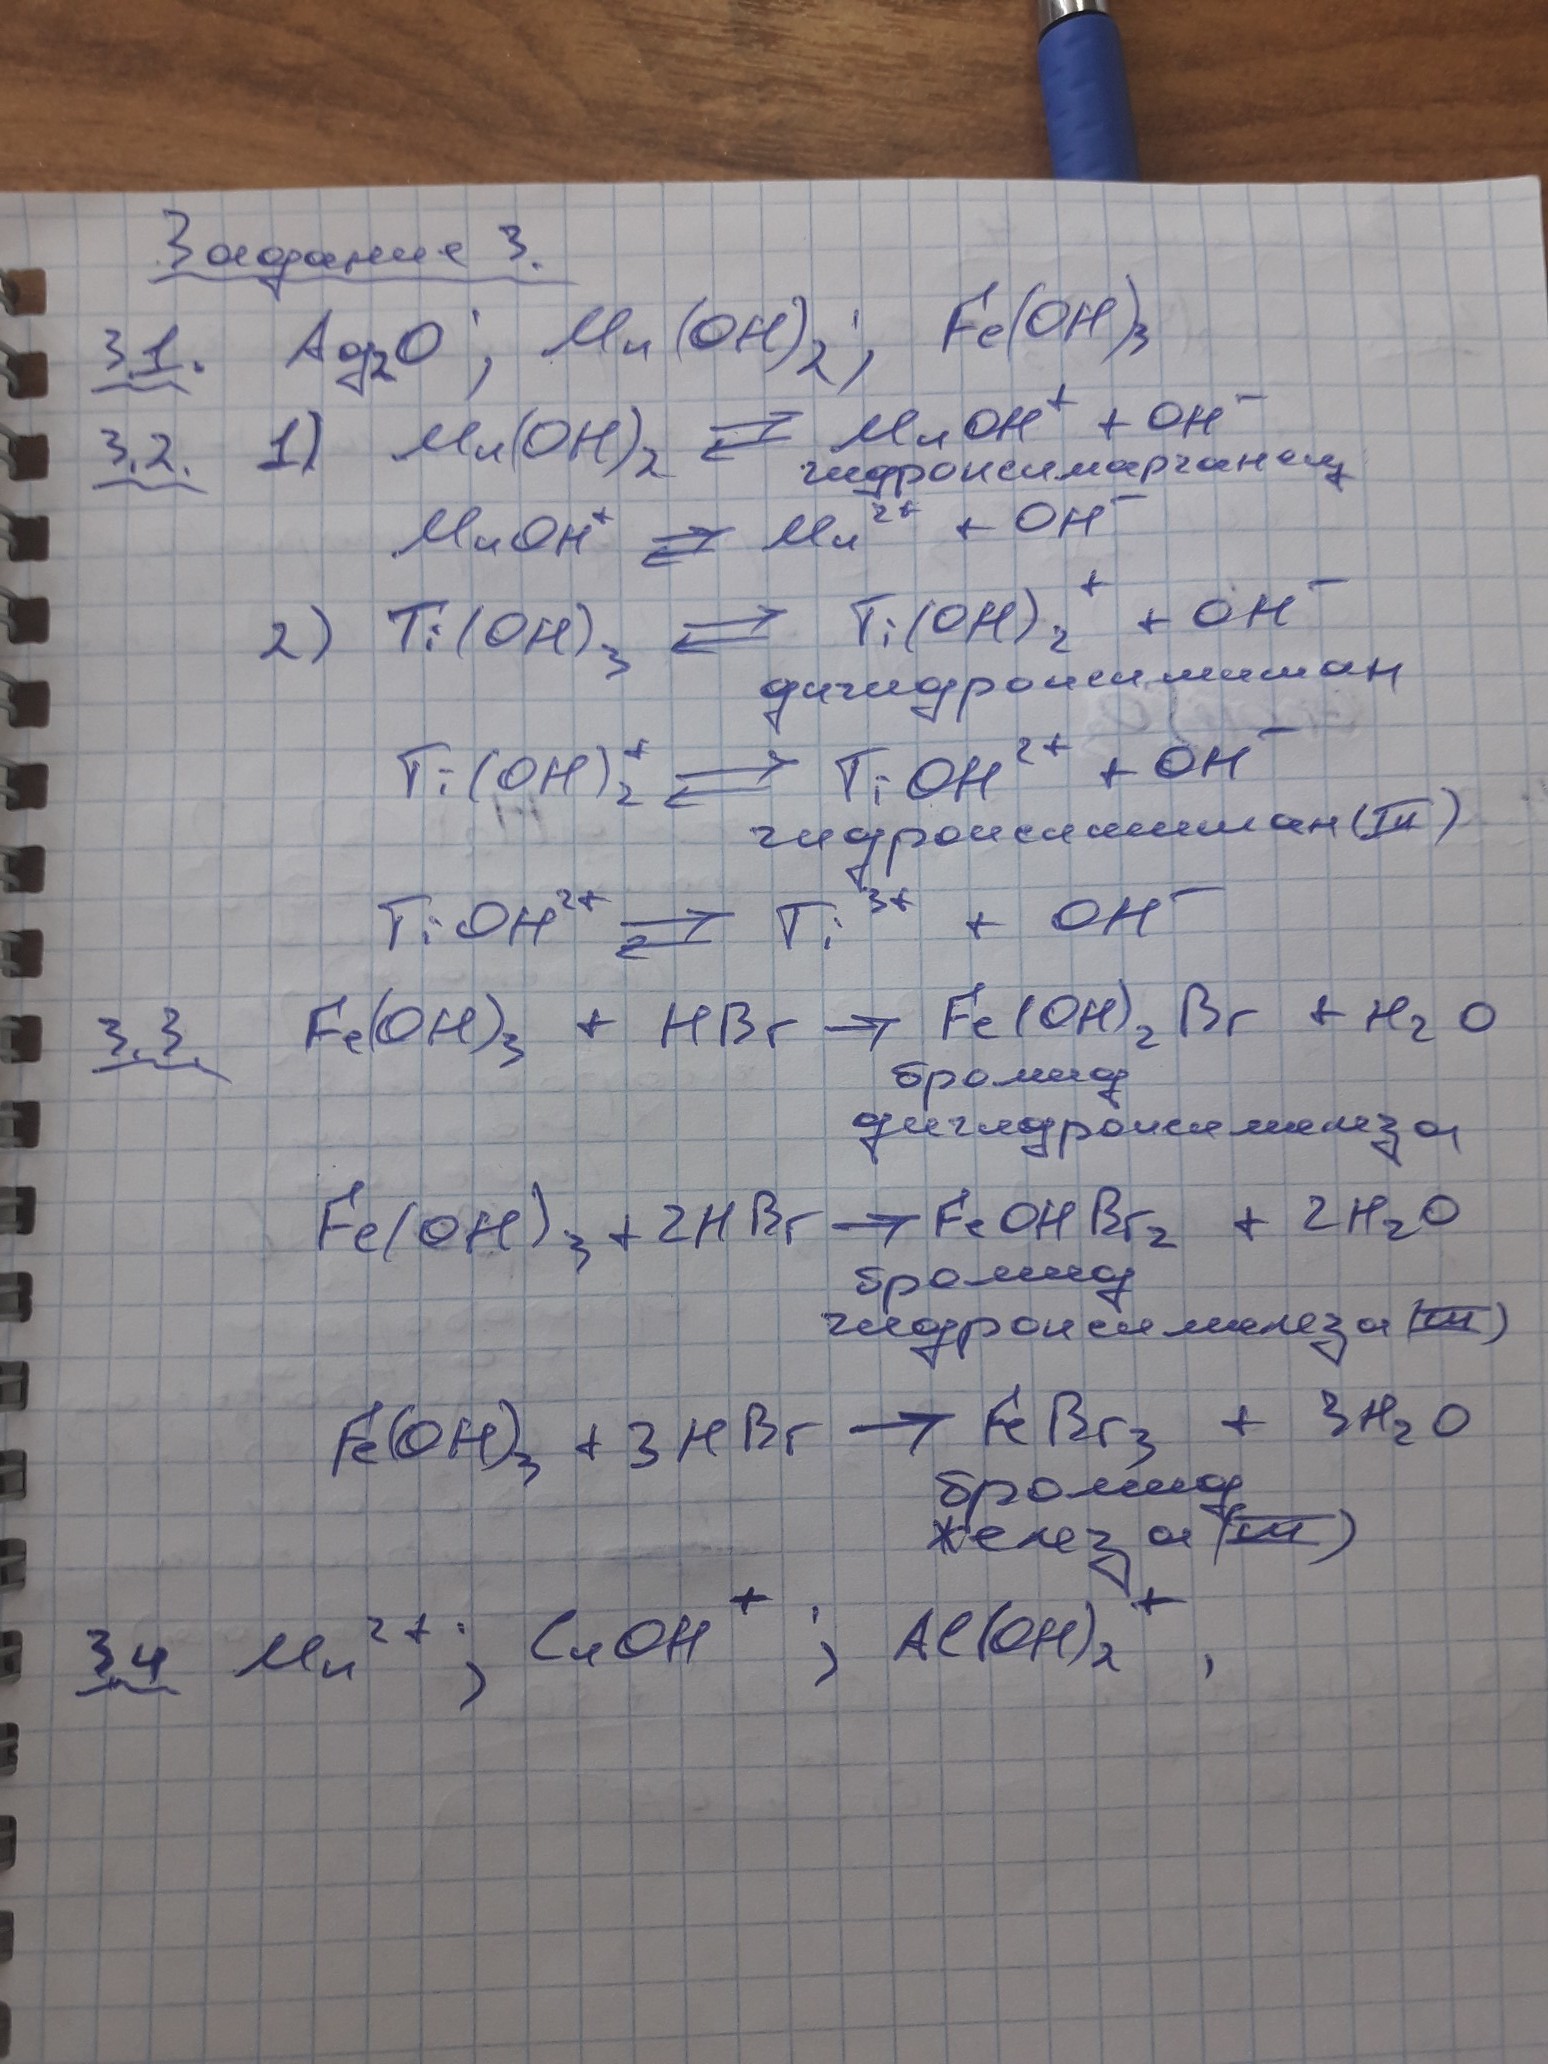 Задание 3.
3.1. Ag₂O; Mn(OH)₂; Fe(OH)₃
3.2. 1) Mn(OH)₂ ⇄ MnOH⁺ + OH⁻
гидроксимарганец
MnOH⁺ ⇄ Mn²⁺ + OH⁻
2) Ti(OH)₃ ⇄ Ti(OH)₂⁺ + OH⁻
дигидрокситин
Ti(OH)₂⁺ ⇄ TiOH²⁺ + OH⁻
гидрокситин(III)
TiOH²⁺ ⇄ Ti³⁺ + OH⁻
3.3. Fe(OH)₃ + HBr → Fe(OH)₂Br + H₂O
бромид
дигидроксижелеза
Fe(OH)₃ + 2HBr → FeOHBr₂ + 2H₂O
бромид
гидроксижелеза(III)
Fe(OH)₃ + 3HBr → FeBr₃ + 3H₂O
бромид
железа(III)
3.4 Mn²⁺; CuOH⁺; Al(OH)₂⁺,